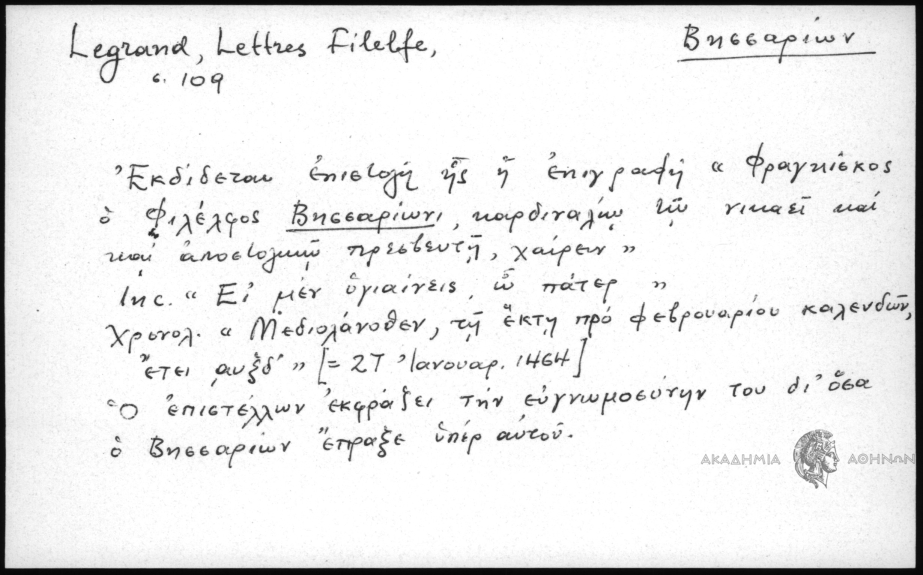 Legrand, Lettres Filelfe,
Βησσαρίων
σ. 109
Ἐκδίδεται ἐπιστολὴ ἧς ἡ ἐπιγραφὴ « Φραγκίσκος
ὁ Φιλέλφος Βησσαρίωνι, καρδιναλίῳ τῷ νικαεῖ καὶ
καὶ ἀποστολικῷ πρεσβευτῇ, χαίρειν »
Inc. « Εἰ μὲν ὑγιαίνεις, ὦ πάτερ »
Χρονολ. « Μεδιολάνοθεν, τῇ ἕκτῃ πρὸ φεβρουαρίου καλενδῶν,
ἔτει ͵αυξδʹ » [= 27 Ἰανουαρ. 1464]
Ὁ ἐπιστέλλων ἐκφράζει τὴν εὐγνωμοσύνην του δι' ὅσα
ὁ Βησσαρίων ἔπραξε ὑπὲρ αὐτοῦ.
ΑΚΑΔΗΜΙΑ ΑΘΗΝΩΝ